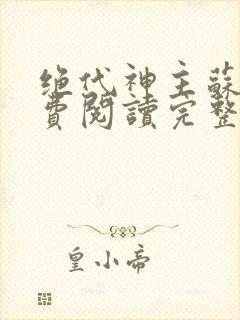 绝代神主蘇
費閱讀完整
皇小帝